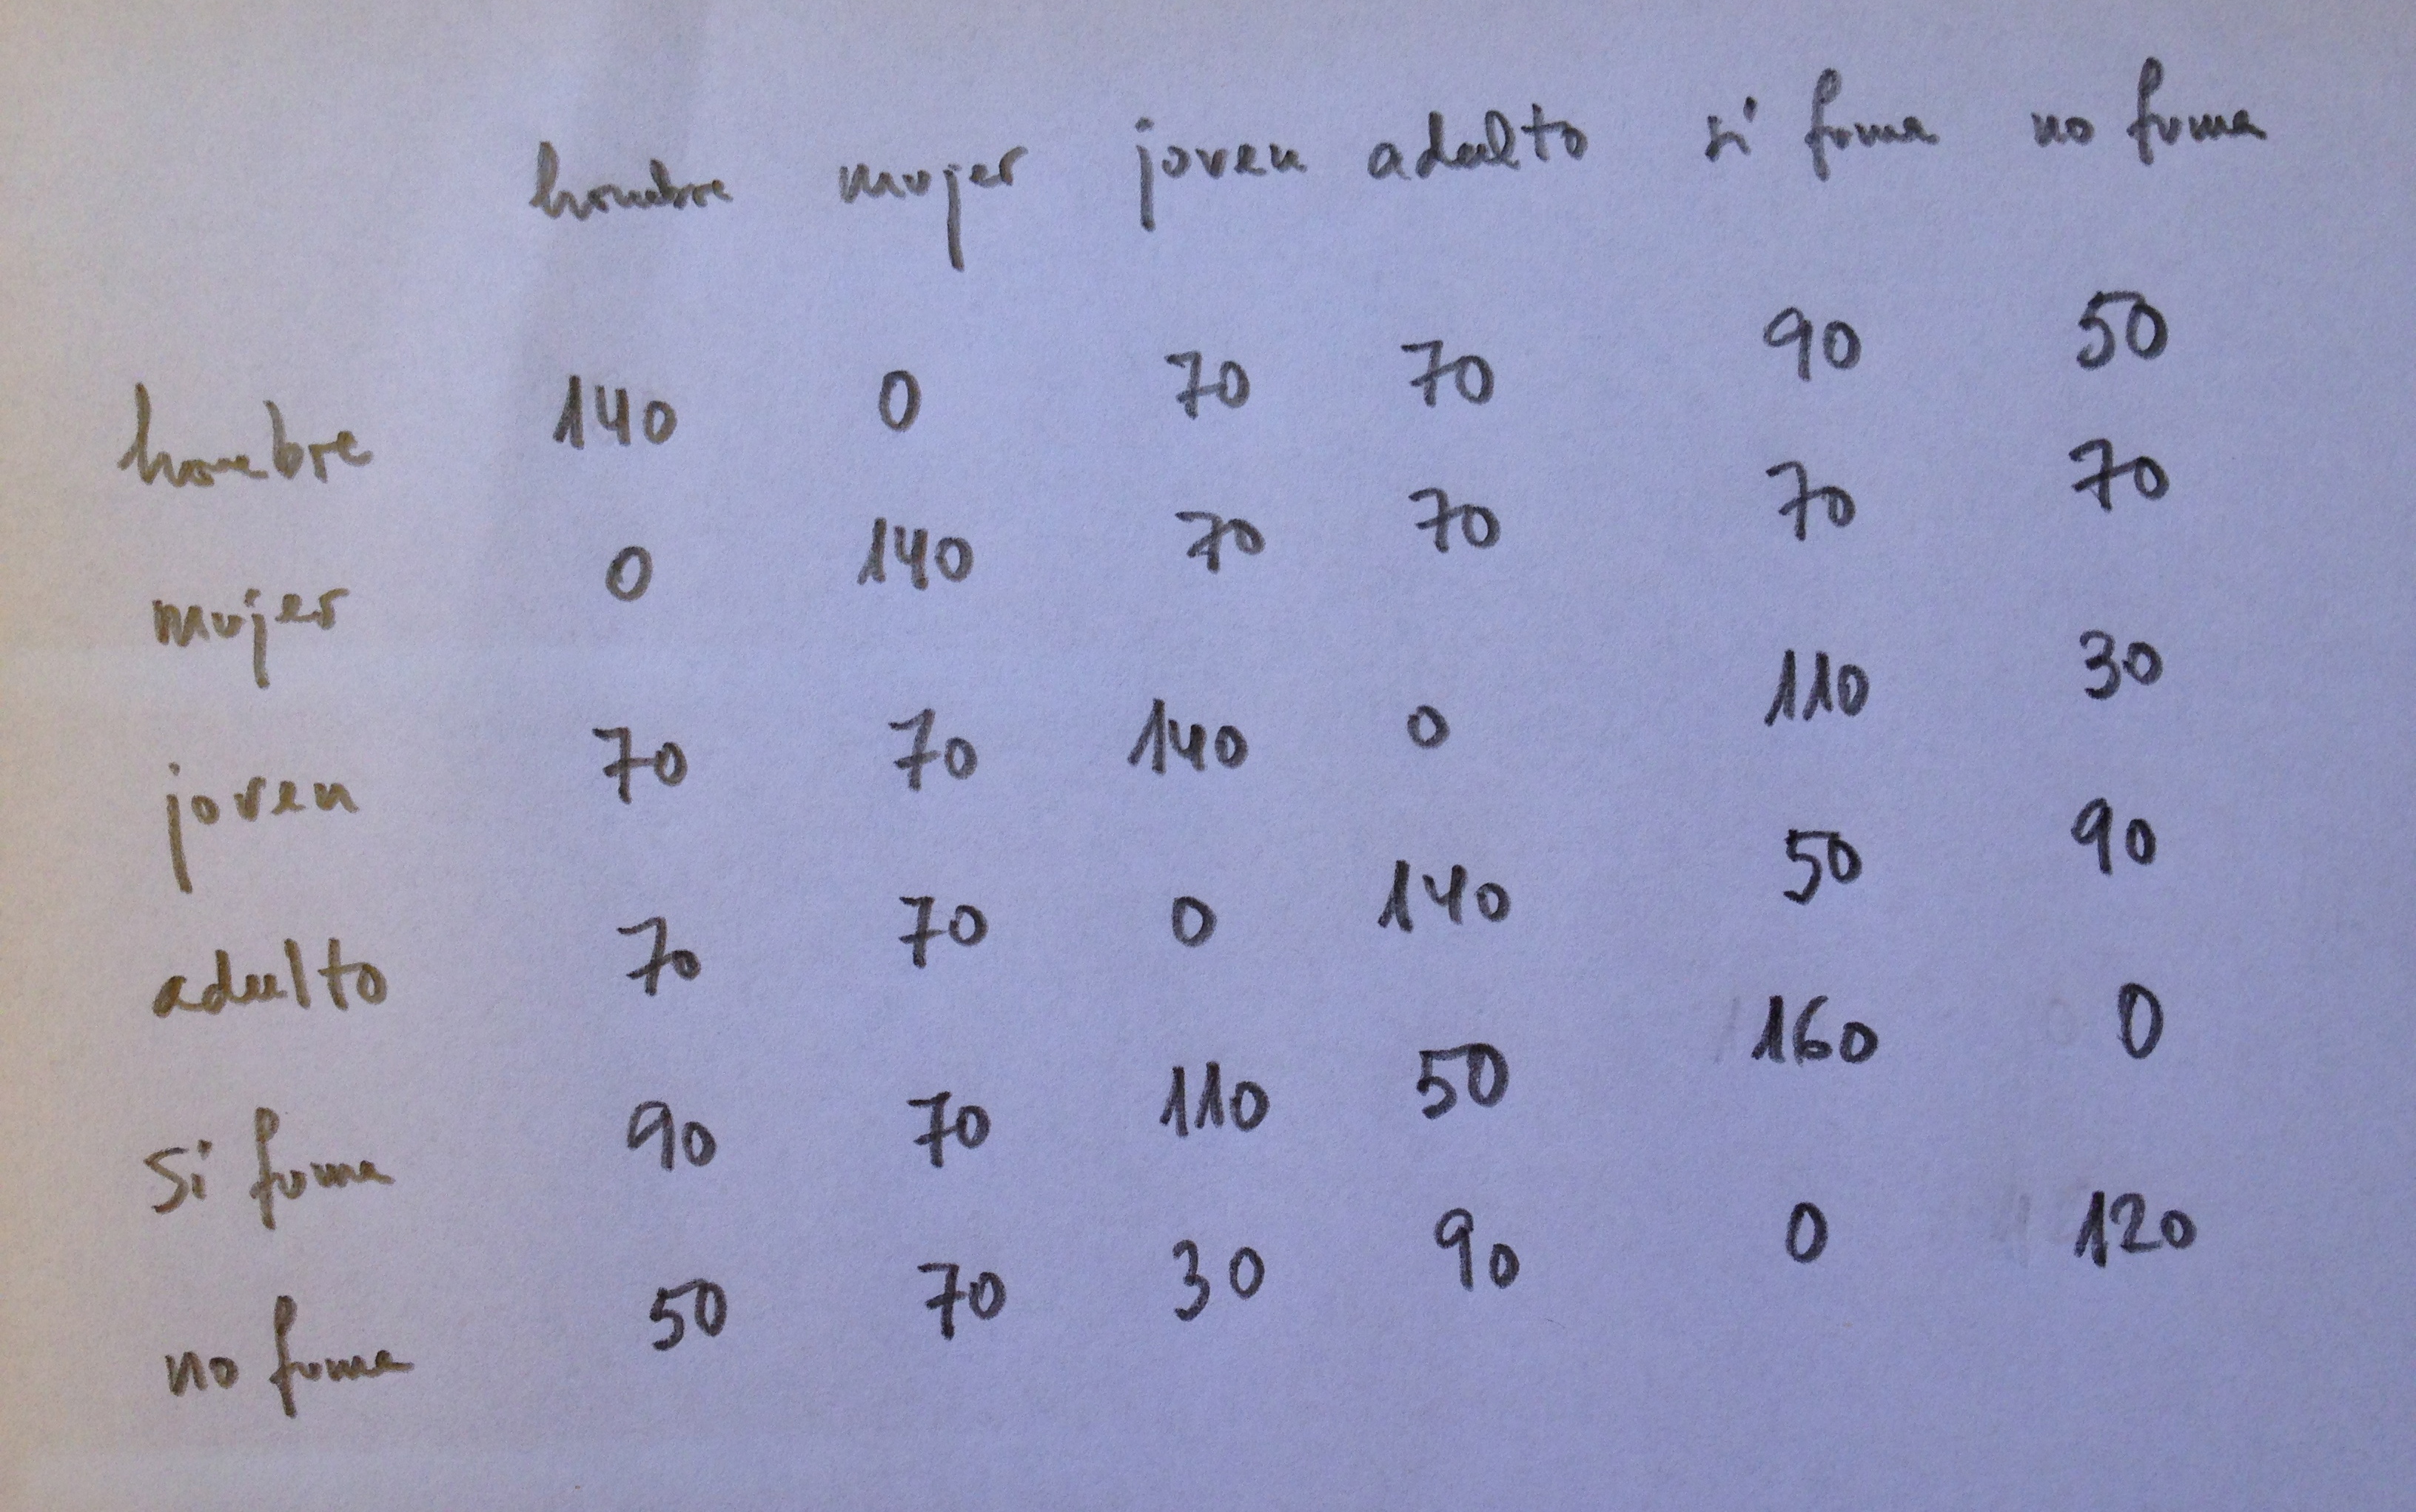 hombre mujer joven adulto si fuma no fuma
hombre 140 0 70 70 90 50
mujer 0 140 70 70 70 70
joven 70 70 140 0 110 30
adulto 70 70 0 140 50 90
si fuma 90 70 110 50 160 0
no fuma 50 70 30 90 0 120